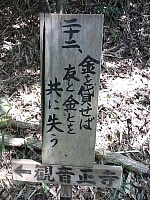 二十二、
金を貸せば
友と金とを
共に失う
←観音正寺